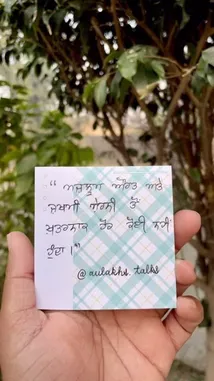 “ ਮਜ਼ਲੂਮ ਔਰਤ ਅਤੇ
ਜ਼ਖਮੀ ਸ਼ੇਰਨੀ ਤੋਂ
ਖ਼ਤਰਨਾਕ ਹੋਰ ਕੋਈ ਨਹੀਂ
ਹੁੰਦਾ।”
@aulakhs_talks